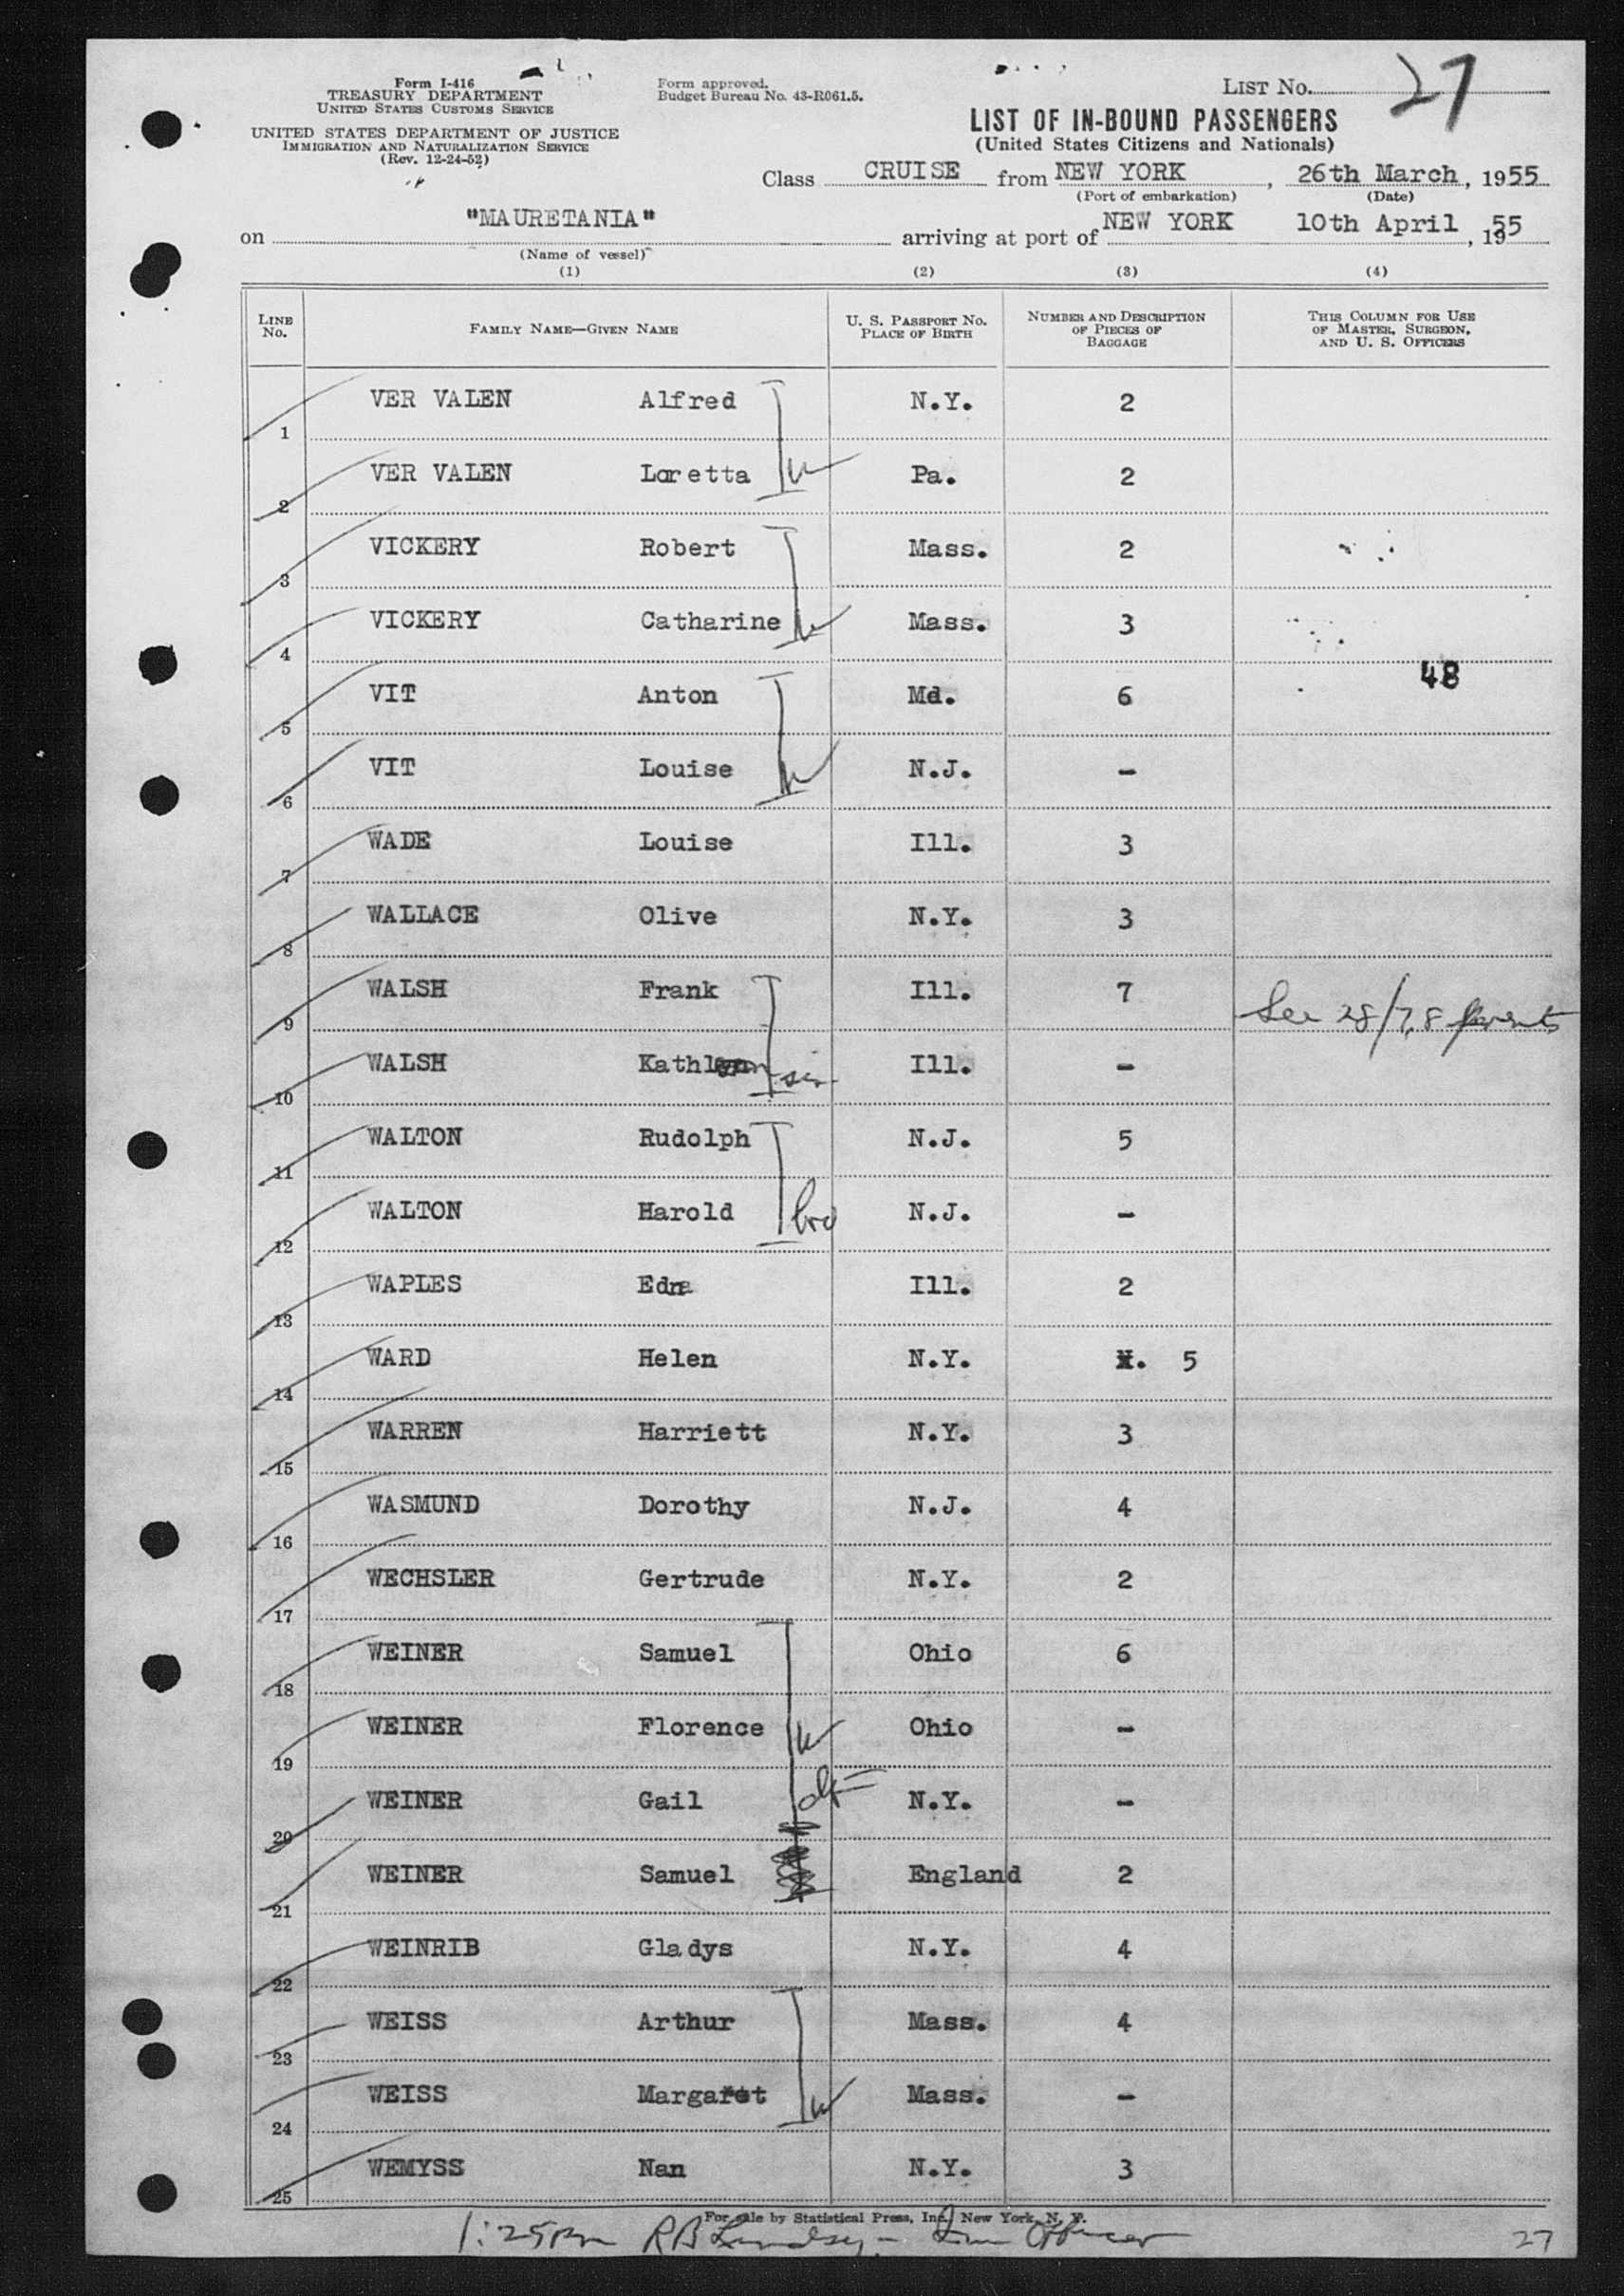 Form I-416
TREASURY DEPARTMENT
UNITED STATES CUSTOMS SERVICE
UNITED STATES DEPARTMENT OF JUSTICE
IMMIGRATION AND NATURALIZATION SERVICE
(Rev. 12-24-52)
Form approved.
Budget Bureau No. 43-R061.5.
LIST No. 27
LIST OF IN-BOUND PASSENGERS
(United States Citizens and Nationals)
Class CRUISE from NEW YORK, 26th March, 1955
(Port of embarkation) (Date)
on "MAURETANIA" arriving at port of NEW YORK 10th April, 1955
(Name of vessel)
(1) (2) (3) (4)
LINE No. FAMILY NAME—GIVEN NAME U. S. PASSPORT NO. PLACE OF BIRTH NUMBER AND DESCRIPTION OF PIECES OF BAGGAGE THIS COLUMN FOR USE OF MASTER, SURGEON, AND U. S. OFFICERS
1 VER VALEN Alfred N.Y. 2
2 VER VALEN Loretta w Pa. 2
3 VICKERY Robert Mass. 2
4 VICKERY Catharine w Mass. 3
48
5 VIT Anton Md. 6
6 VIT Louise w N.J. -
7 WADE Louise Ill. 3
8 WALLACE Olive N.Y. 3
9 WALSH Frank Ill. 7 See 28/7,8 parents
10 WALSH sis Ill. -
11 WALTON Rudolph N.J. 5
12 WALTON Harold bro N.J. -
13 WAPLES Edna Ill. 2
14 WARD Helen N.Y. 5
15 WARREN Harriett N.Y. 3
16 WASMUND Dorothy N.J. 4
17 WECHSLER Gertrude N.Y. 2
18 WEINER Samuel Ohio 6
19 WEINER Florence w Ohio -
20 WEINER Gail N.Y. -
21 WEINER Samuel England 2
22 WEINRIB Gladys N.Y. 4
23 WEISS Arthur Mass. 4
24 WEISS Margaret w Mass. -
25 WEMYSS Nan N.Y. 3
For sale by Statistical Press, Inc. New York, N. Y.
1:25pm RB Lindsey - Imm Officer
27